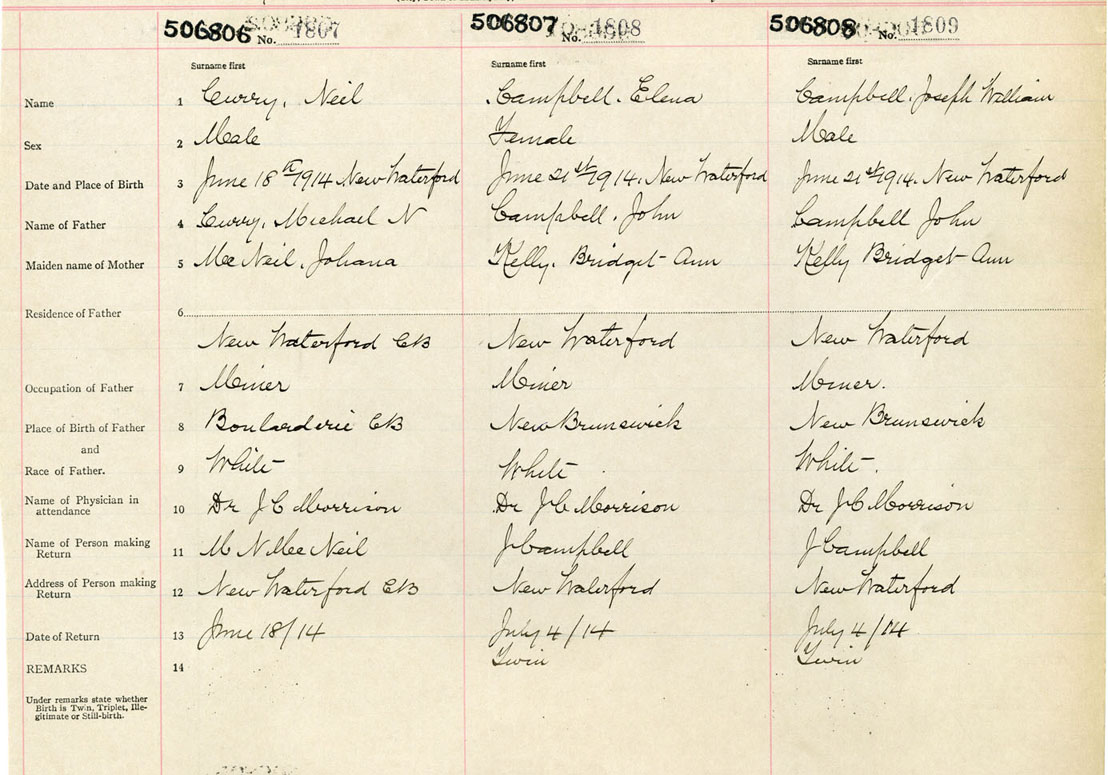 506806 No. 1807 506807 No. 1808 506808 No. 1809
Surname first Surname first Surname first
Name 1 Curry, Neil Campbell. Elena Campbell. Joseph William
Sex 2 Male Female Male
Date and Place of Birth 3 June 18th 1914 New Waterford June 21st 1914. New Waterford June 21st 1914. New Waterford
Name of Father 4 Curry, Michael N Campbell. John Campbell John
Maiden name of Mother 5 Mc Neil, Johana Kelly. Bridget Ann Kelly Bridget Ann
Residence of Father 6
New Waterford CB New Waterford New Waterford
Occupation of Father 7 Miner Miner Miner.
Place of Birth of Father 8 Boularderie CB New Brunswick New Brunswick
and
Race of Father. 9 White White White.
Name of Physician in
attendance 10 Dr J C Morrison Dr J C Morrison Dr J C Morrison
Name of Person making
Return 11 M N Mc Neil J Campbell J Campbell
Address of Person making
Return 12 New Waterford CB New Waterford New Waterford
Date of Return 13 June 18/14 July 4/14 July 4/14
REMARKS 14 Twin Twin
Under remarks state whether
Birth is Twin, Triplet, Ille-
gitimate or Still-birth.